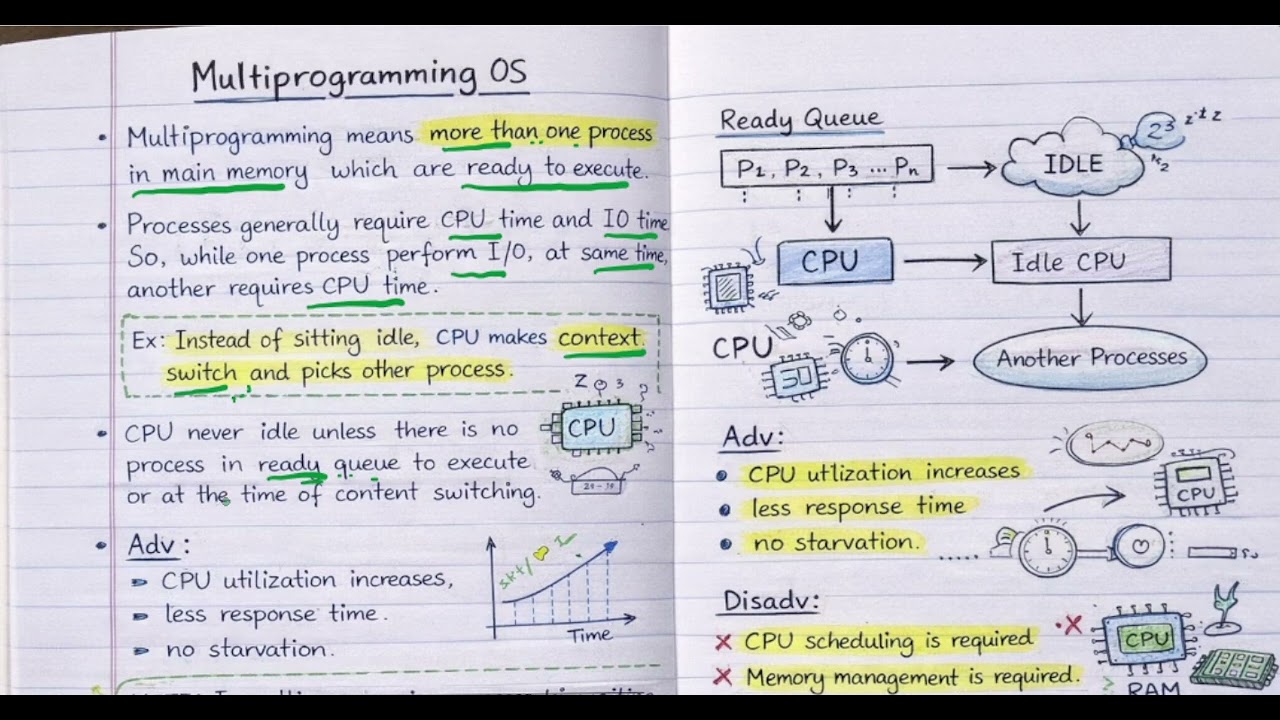 Multiprogramming OS
• Multiprogramming means more than one process
in main memory which are ready to execute.
• Processes generally require CPU time and IO time
So, while one process perform I/O, at same time,
another requires CPU time.
Ex: Instead of sitting idle, CPU makes context
switch and picks other process.
• CPU never idle unless there is no
process in ready queue to execute
or at the time of content switching.
CPU
• Adv:
CPU utilization increases,
less response time.
no starvation.
Time
Ready Queue
P1, P2, P3 ... Pn
IDLE
CPU
Idle CPU
CPU
Another Processes
Adv:
• CPU utlization increases
• less response time
• no starvation.
CPU
Disadv:
✗ CPU scheduling is required
✗ Memory management is required.
CPU
RAM